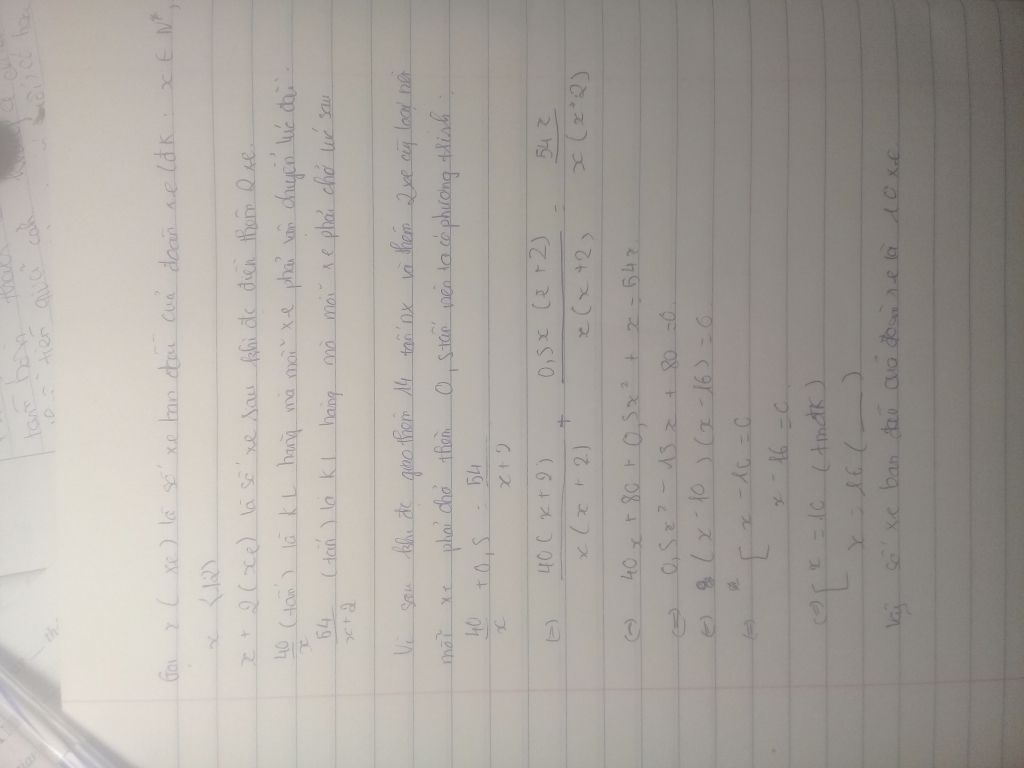 Gọi x (xe) là số xe ban đầu của đoàn xe (đk: x ∈ N*,
x < 12)
x + 2 (xe) là số xe sau khi đc điều thêm 2 xe.
40/x (tấn) là KL hàng mà mỗi xe phải vận chuyển lúc đầu.
54/(x+2) (tấn) là KL hàng mà mỗi xe phải chở lúc sau
Vì sau khi đc giao thêm 14 tấn nx và thêm 2 xe cùng loại nên
mỗi xe phải chở thêm 0,5 tấn nên ta có phương trình:
40/x + 0,5 = 54/(x+2)
(=) 40(x+2)/x(x+2) + 0,5x(x+2)/x(x+2) = 54x/x(x+2)
(=) 40x + 80 + 0,5x² + x = 54x
(=) 0,5x² - 13x + 80 = 0
(=) (x - 10)(x - 16) = 0
(=) [ x - 10 = 0
x - 16 = 0
(=) [ x = 10 (tmđk)
x = 16 (
Vậy số xe ban đầu của đoàn xe là 10 xe
tấn hàng
tiền quả cân